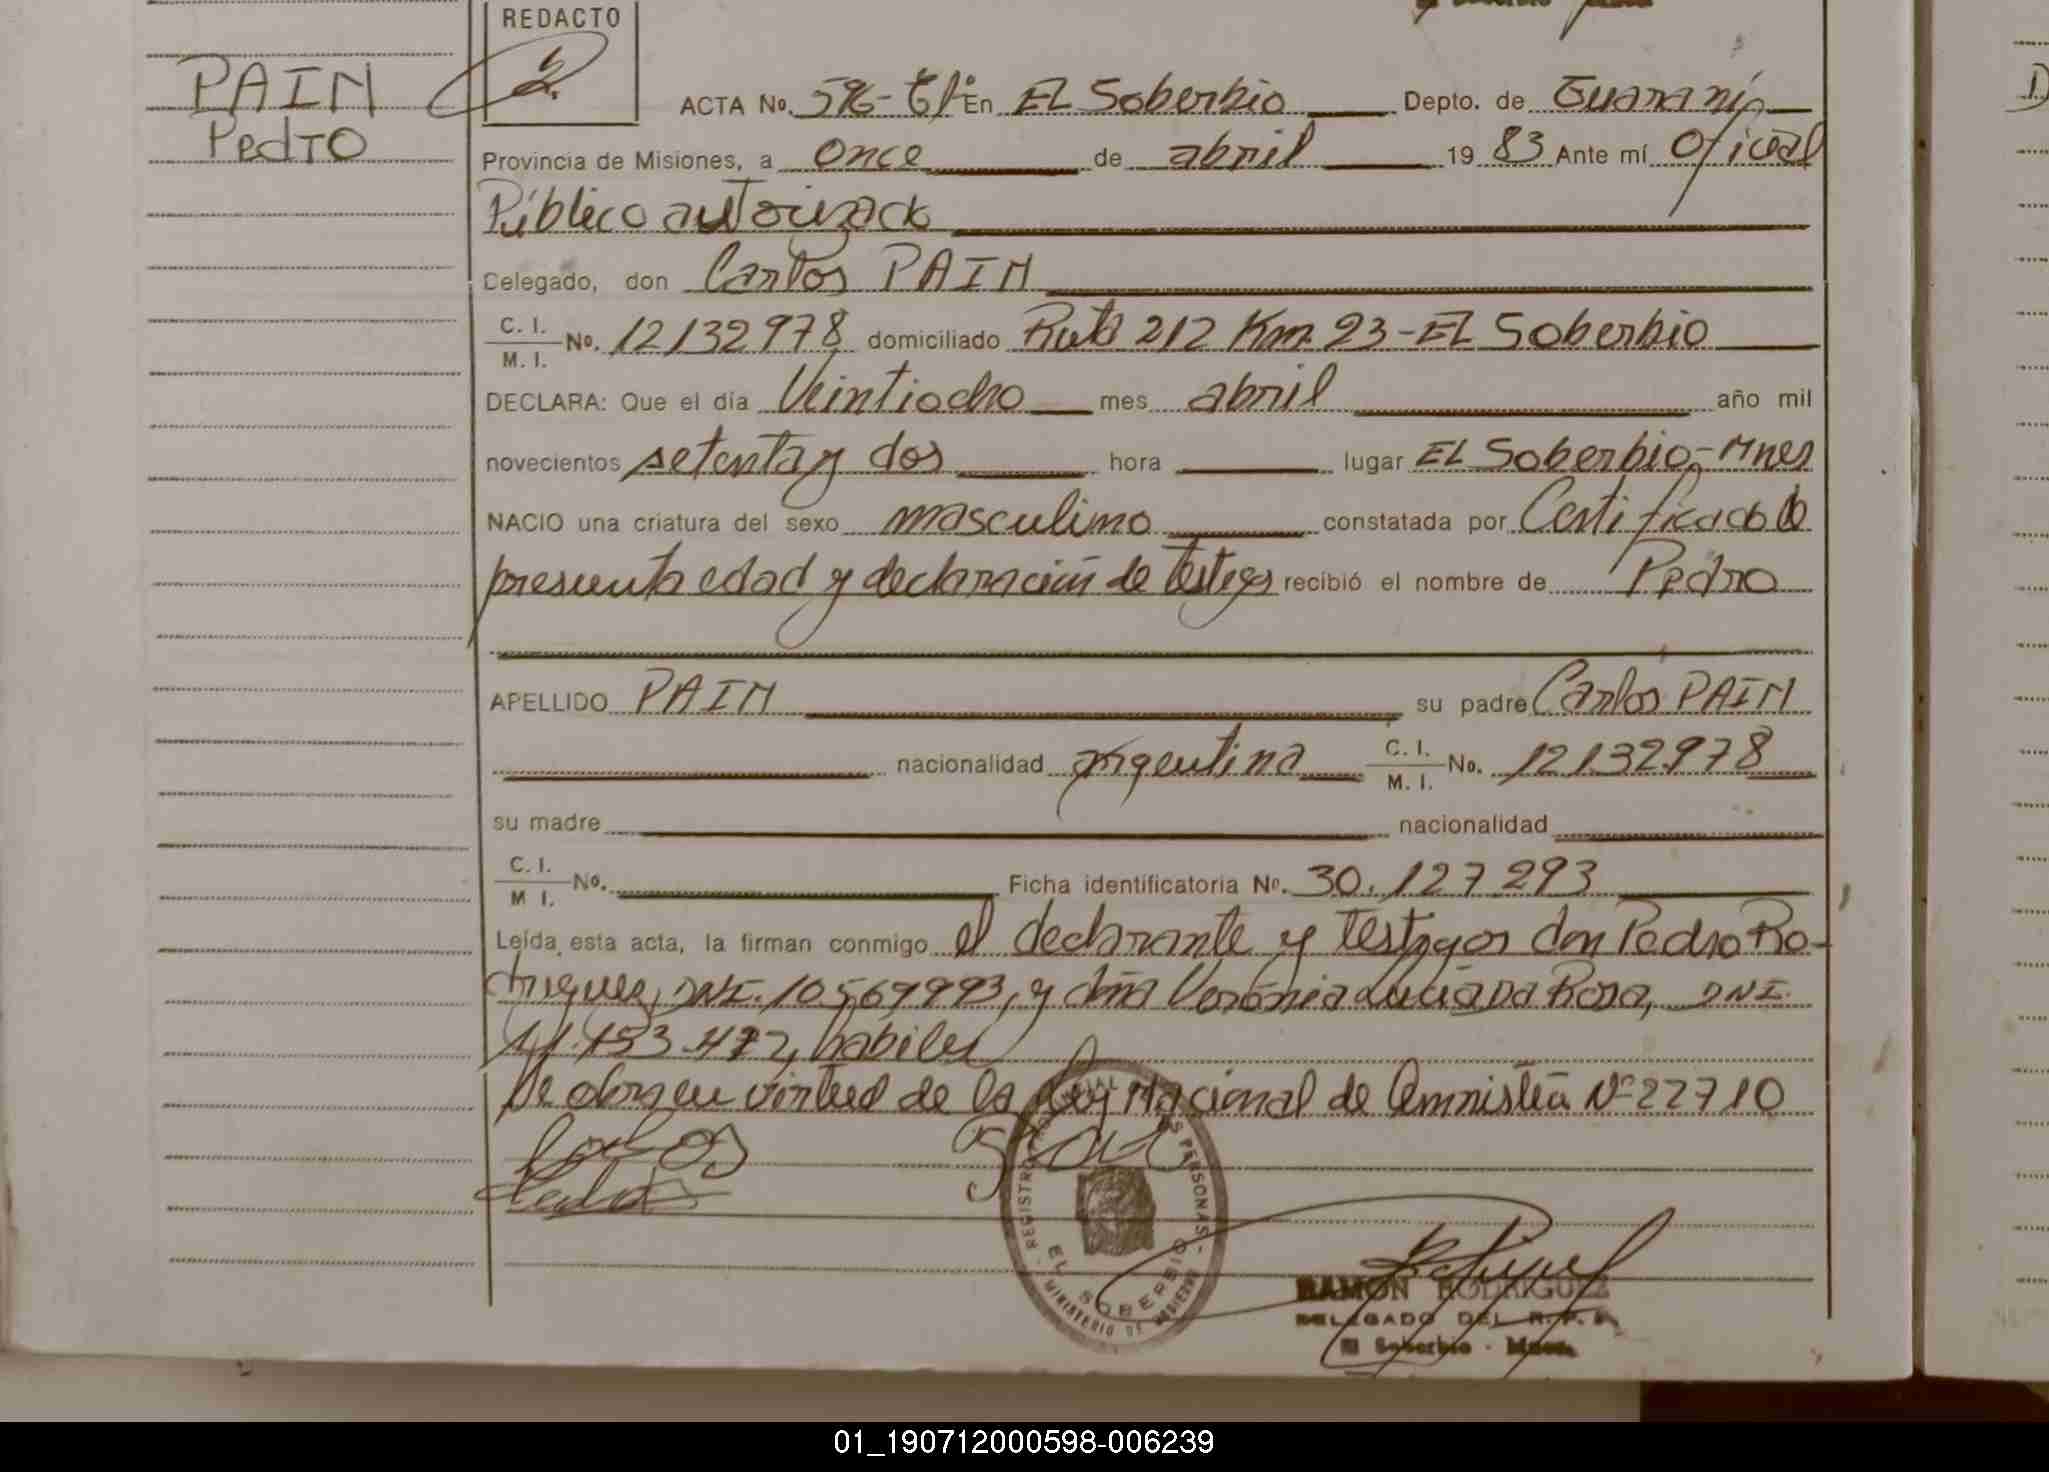 REDACTO
PAIN
Pedro
ACTA No. 596- Tº Iº En EL Soberbio Depto. de Guaraní
Provincia de Misiones, a once de abril 19 83 Ante mí Oficial
Público autorizado
Delegado, don Carlos PAIN
C. I. / M. I. No. 12132978 domiciliado Ruta 212 Km. 23-EL Soberbio
DECLARA: Que el día Veintiocho mes abril año mil
novecientos setenta y dos hora lugar EL Soberbio-Mnes
NACIO una criatura del sexo masculino constatada por Certificado de
presunta edad y declaración de testigos recibió el nombre de Pedro
APELLIDO PAIN su padre Carlos PAIN
nacionalidad argentina C. I. / M. I. No. 12132978
su madre nacionalidad
C. I. / M I. No. Ficha identificatoria No. 30.127293
Leída esta acta, la firman conmigo el declarante y testigos don Pedro Ro-
driguez, DNI. 10569993, y doña Verónica Luciana Rosa, DNI.
11.153.472, habiles
Se obra en virtud de la Ley Nacional de Amnistía Nº 22710
REGISTRO PROVINCIAL DE LAS PERSONAS - EL SOBERBIO - MINISTERIO DE GOBIERNO
RAMON RODRIGUEZ
DELEGADO DEL R. P. P.
El Soberbio - Mnes.
01_190712000598-006239